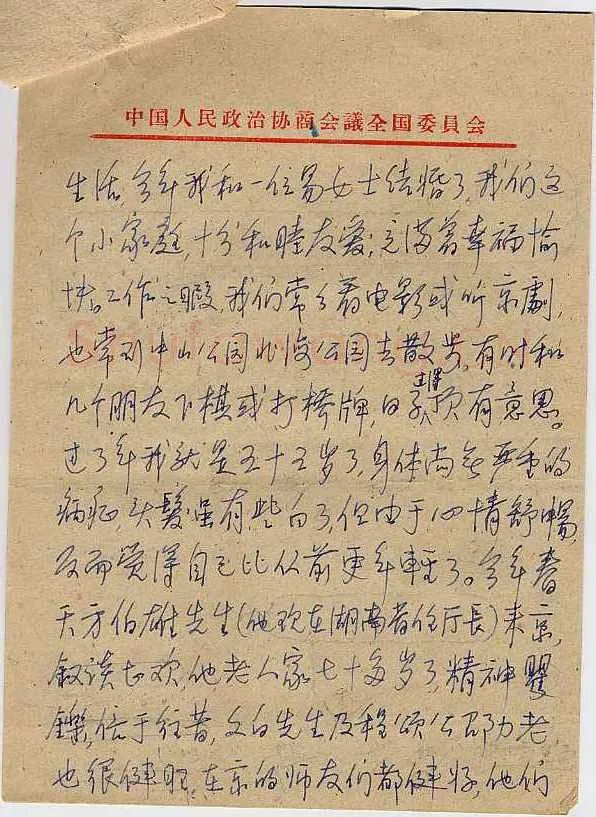 中国人民政治协商会議全国委員会
生活，今年我和一位易女士结婚了，我们这
个小家庭，十分和睦友爱；充满着幸福愉
快。工作之暇，我们常々看电影或听京劇，
也常到中山公园北海公园去散步。有时和
几个朋友下棋或打桥牌，日子过得颇有意思。
过了年我就是五十五岁了，身体尚无严重的
病症，头髮虽有些白了，但由于心情舒暢，
反而觉得自己比从前更年輕了。今年春
天方伯雄先生(他现在湖南省任厅長)来京，
叙谈甚欢，他老人家七十多岁了，精神矍
鑠，倍于往昔，文白先生及穆頌公邵力老
也很健旺，在京的师友们都健好，他们